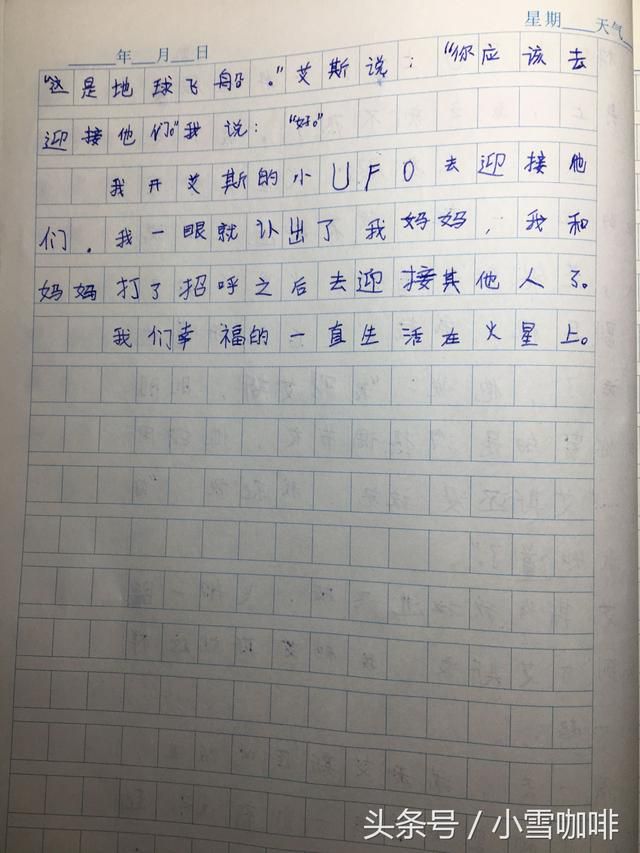 星期___天气
___年___月___日
“这是地球飞船。”艾斯说：“你应该去
迎接他们。”我说：“好。”
我开艾斯的小UFO去迎接他
们。我一眼就认出了我妈妈，我和
妈妈打了招呼之后去迎接其他人了。
我们幸福的一直生活在火星上。
头条号／小雪咖啡